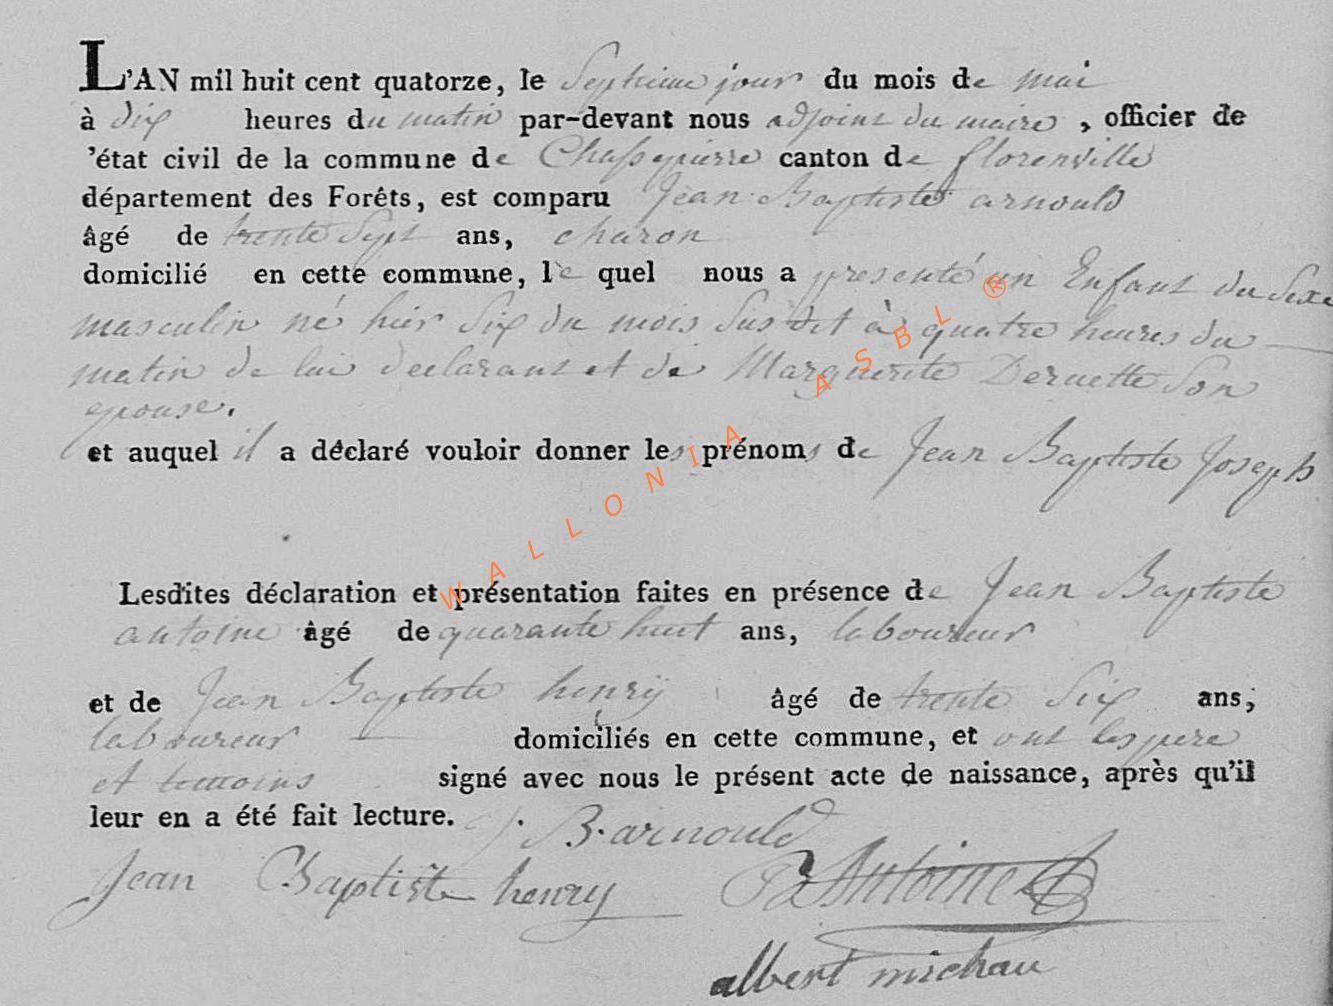 L'AN mil huit cent quatorze, le Septieme jour du mois de mai
à dix heures du matin par-devant nous adjoint du maire, officier de
'état civil de la commune de Chassepierre canton de florenville
département des Forêts, est comparu Jean Baptiste arnould
âgé de trente Sept ans, charon
domicilié en cette commune, le quel nous a presenté un Enfant du Sexe
masculin né hier Six du mois Susdit à quatre heures du
matin de lui declarant et de Marguerite Deruette Son
epouse.
et auquel il a déclaré vouloir donner les prénoms de Jean Baptiste Joseph
Lesdites déclaration et présentation faites en présence de Jean Baptiste
antoine âgé de quarante huit ans, laboureur
et de Jean Baptiste henrÿ âgé de trente Six ans,
laboureur domiciliés en cette commune, et ont les pere
et temoins signé avec nous le présent acte de naissance, après qu'il
leur en a été fait lecture. J. B. arnould
Jean Baptiste henry B Antoine
albert michau
WALLONIA ASBL ®